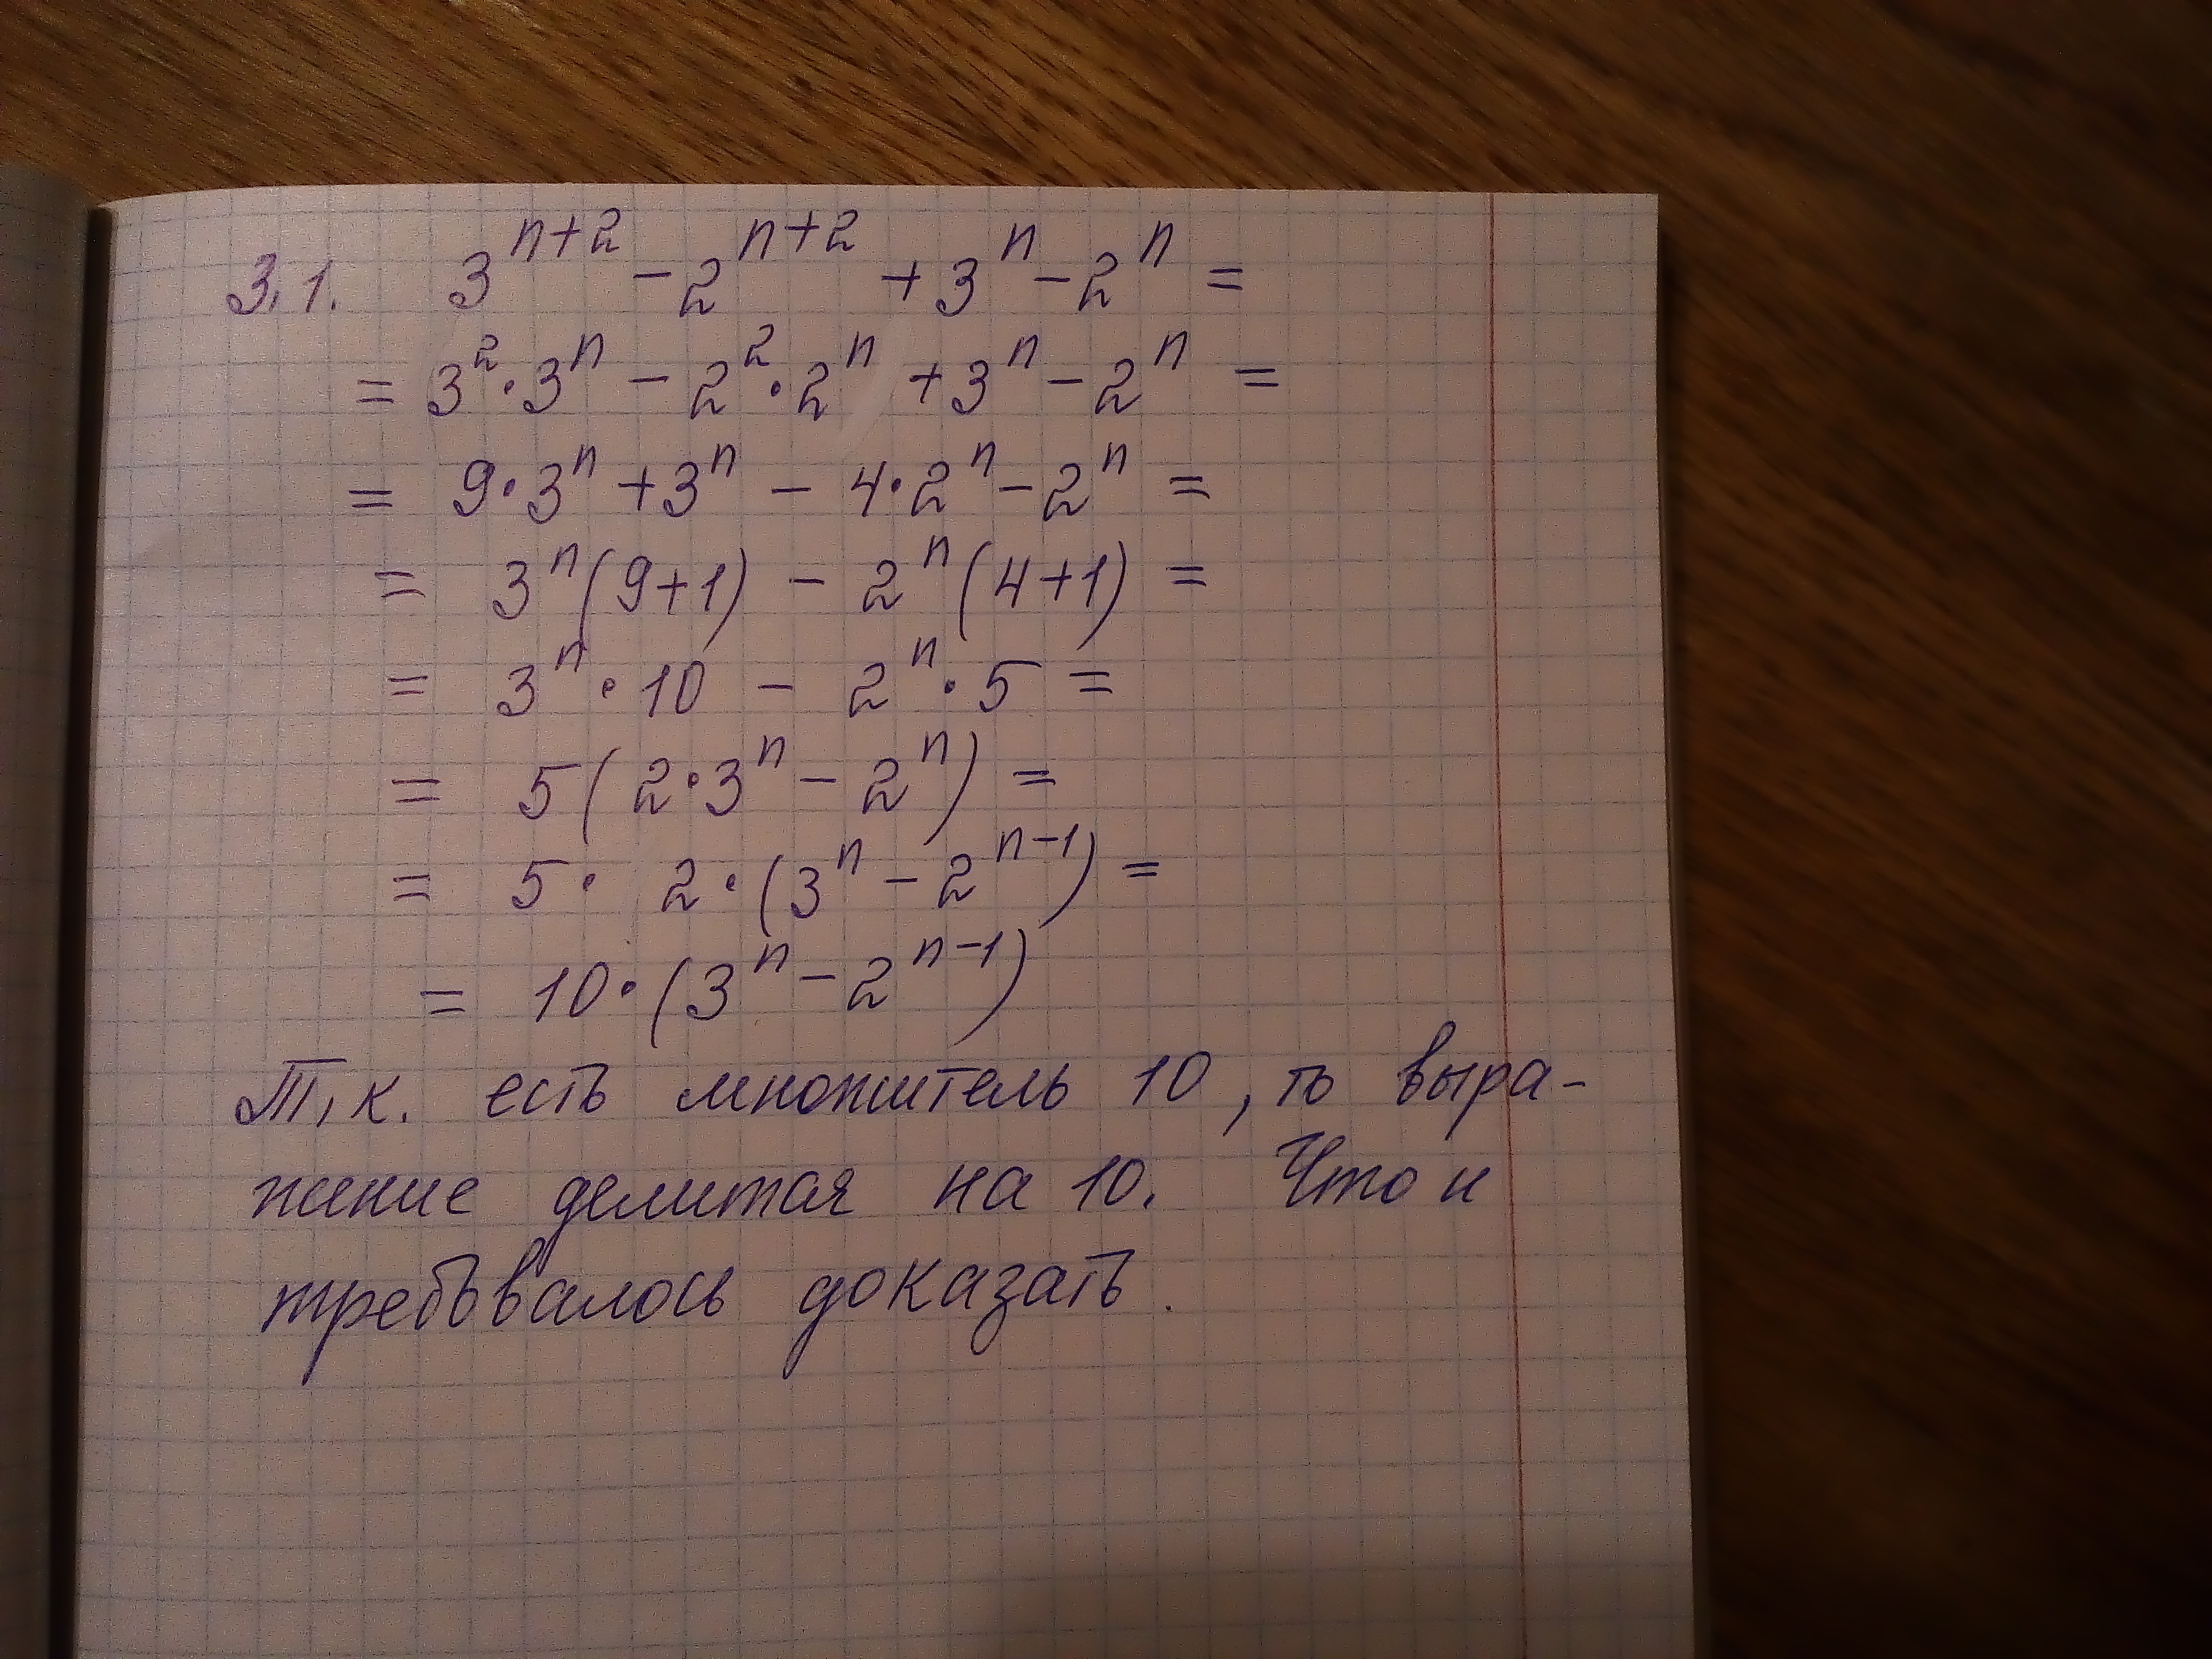 3.1. 3^{n+2} - 2^{n+2} + 3^n - 2^n =
= 3^2 · 3^n - 2^2 · 2^n + 3^n - 2^n =
= 9 · 3^n + 3^n - 4 · 2^n - 2^n =
= 3^n (9+1) - 2^n (4+1) =
= 3^n · 10 - 2^n · 5 =
= 5 (2 · 3^n - 2^n) =
= 5 · 2 · (3^n - 2^{n-1}) =
= 10 · (3^n - 2^{n-1})
Т.к. есть множитель 10, то выра-
жение делится на 10. Что и
требовалось доказать.